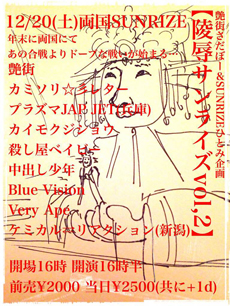 艶街さだぼー&SUNRIZEひとみ企画
【陵辱サンライズvol,2】
12/20(土)両国SUNRIZE
年末に両国にて
あの合戦よりドープな戦いが始まる…
艶街
カミソリ☆キレタ
プラズマJAP JET(兵庫)
カイモクジショウ
殺し屋ベイビー
中出し少年
Blue Vision
Very Ape
ケミカル∞リアクション(新潟)
開場16時 開演16時半
前売¥2000 当日¥2500(共に+1d)